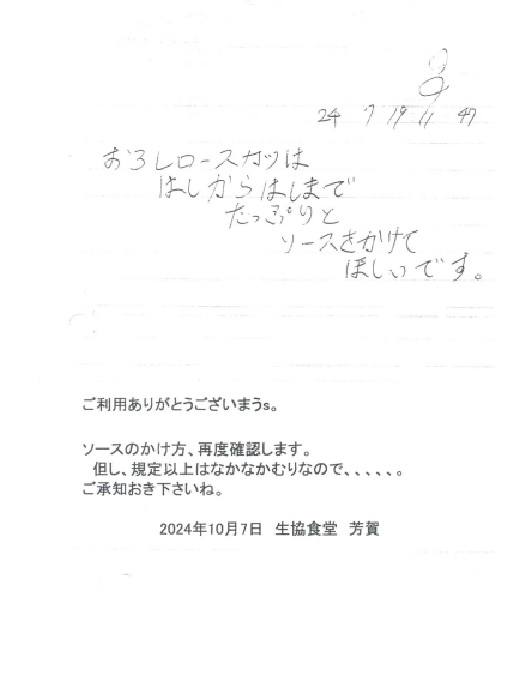 24 7 19 11 47
おろしロースカツは
はしからはしまで
たっぷりと
ソースをかけて
ほしいです。
ご利用ありがとうございまうs。
ソースのかけ方、再度確認します。
但し、規定以上はなかなかむりなので、、、、、。
ご承知おき下さいね。
2024年10月7日 生協食堂 芳賀